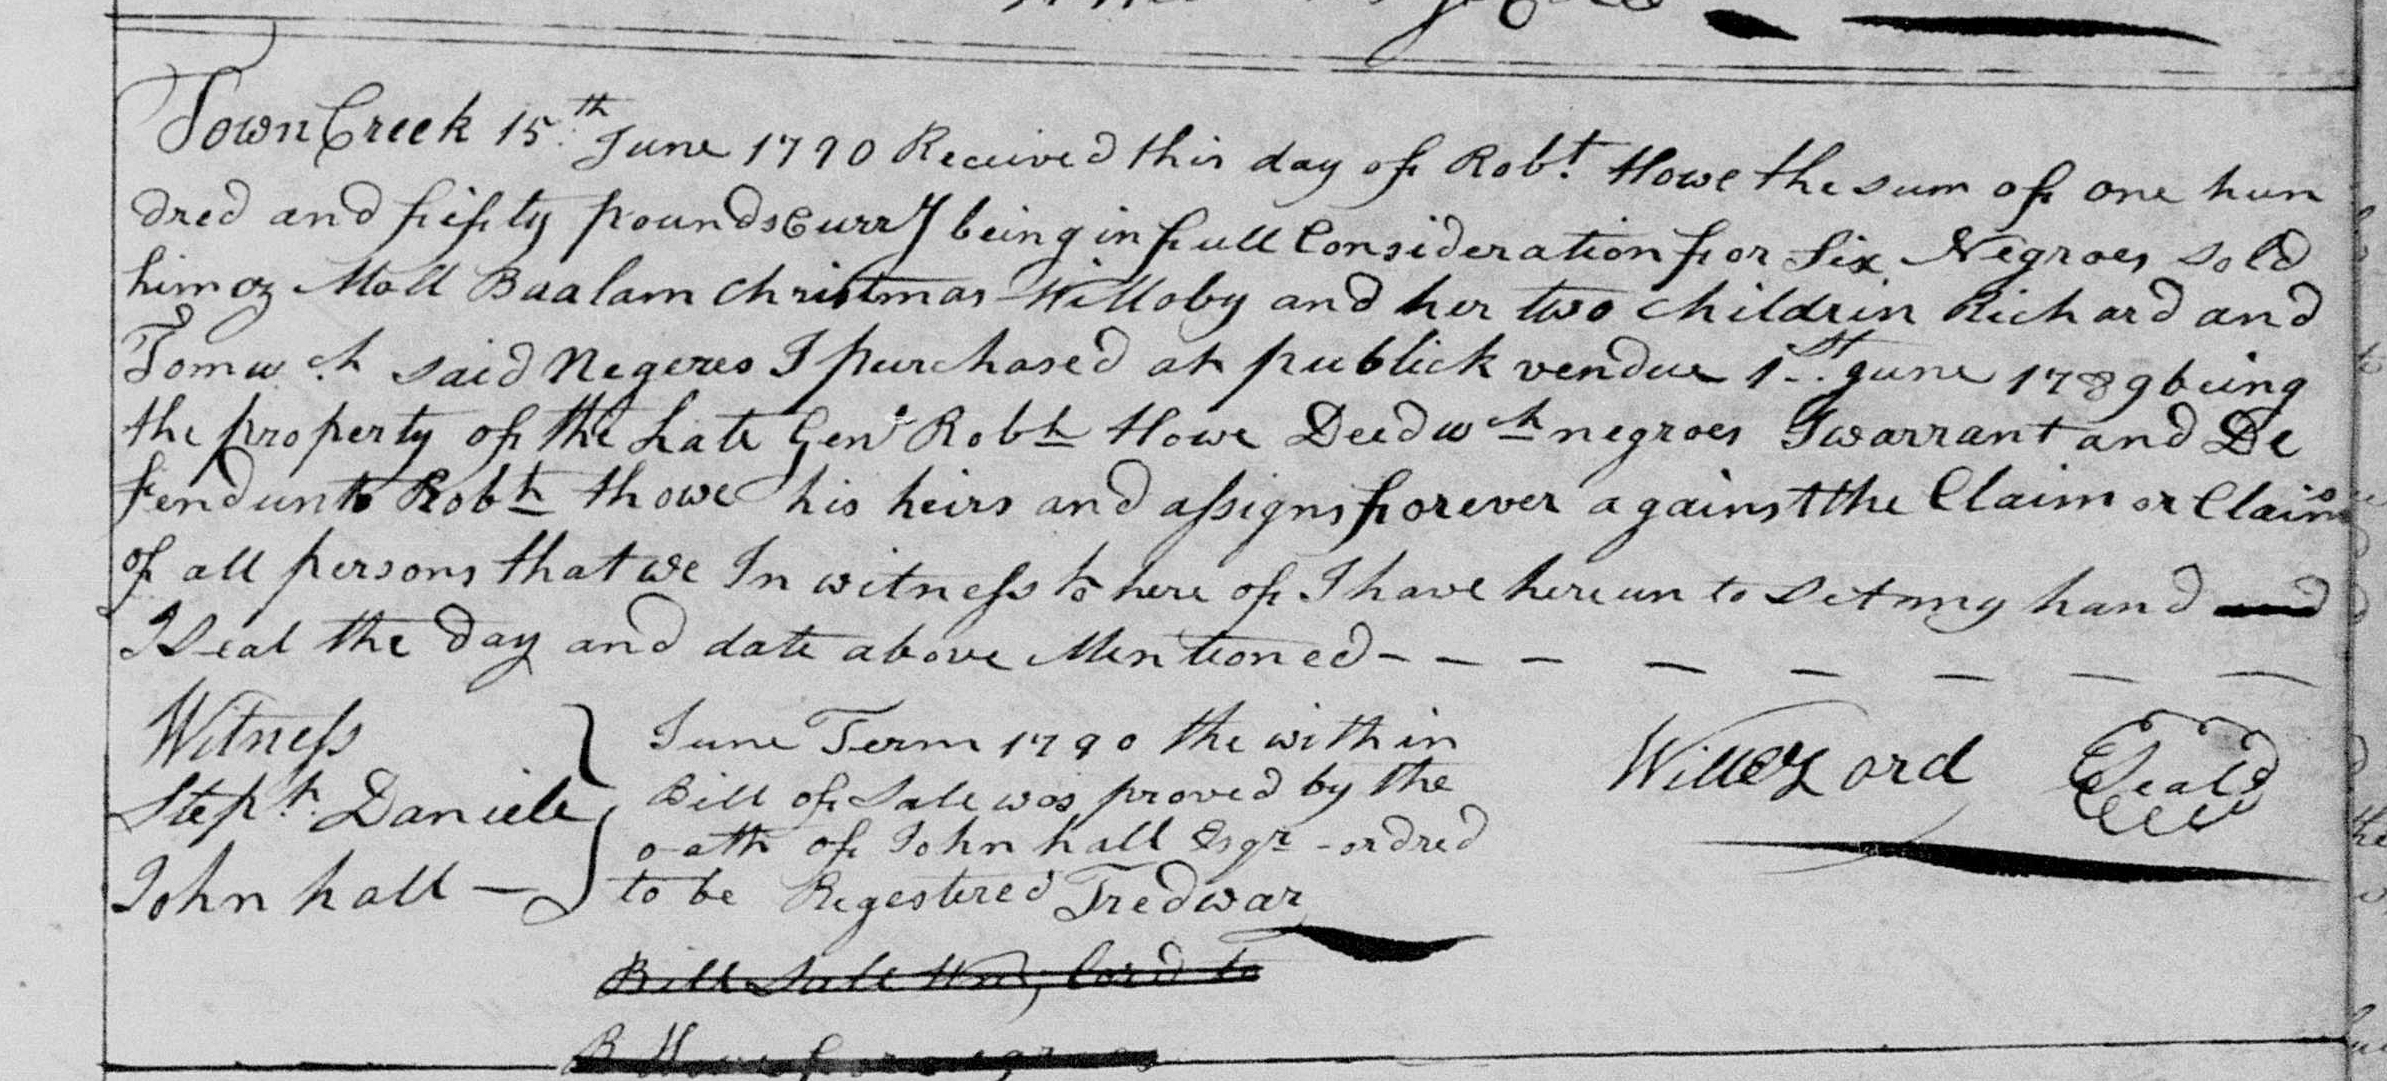 Town Creek 15th June 1790 Received this day of Robt. Howe the sum of one hun
dred and fifty pounds Curry being in full Consideration for Six Negroes sold
him oz Moll Baalam Christmas Willoby and her two childrin Richard and
Tom wch said Negeres I purchased at publick vendue 1st June 1789 being
the property of the Late Genl Robt Howe Deed wch negroes I warrant and De
fend unto Robt Howe his heirs and assigns forever against the Claim or Claims
of all persons that we In witness to here of I have here un to Set my hand and
I Seal the day and date above Mentioned - - - - - - - -
Witness
Steph. Daniele
John hall —
June Term 1790 the with in
Bill of Sale was proved by the
oath of John hall Esqr - ordred
to be Regestered Tredwar
Will Lord Seal
Bill Sale Wm, Lord to
R Howe for negroes